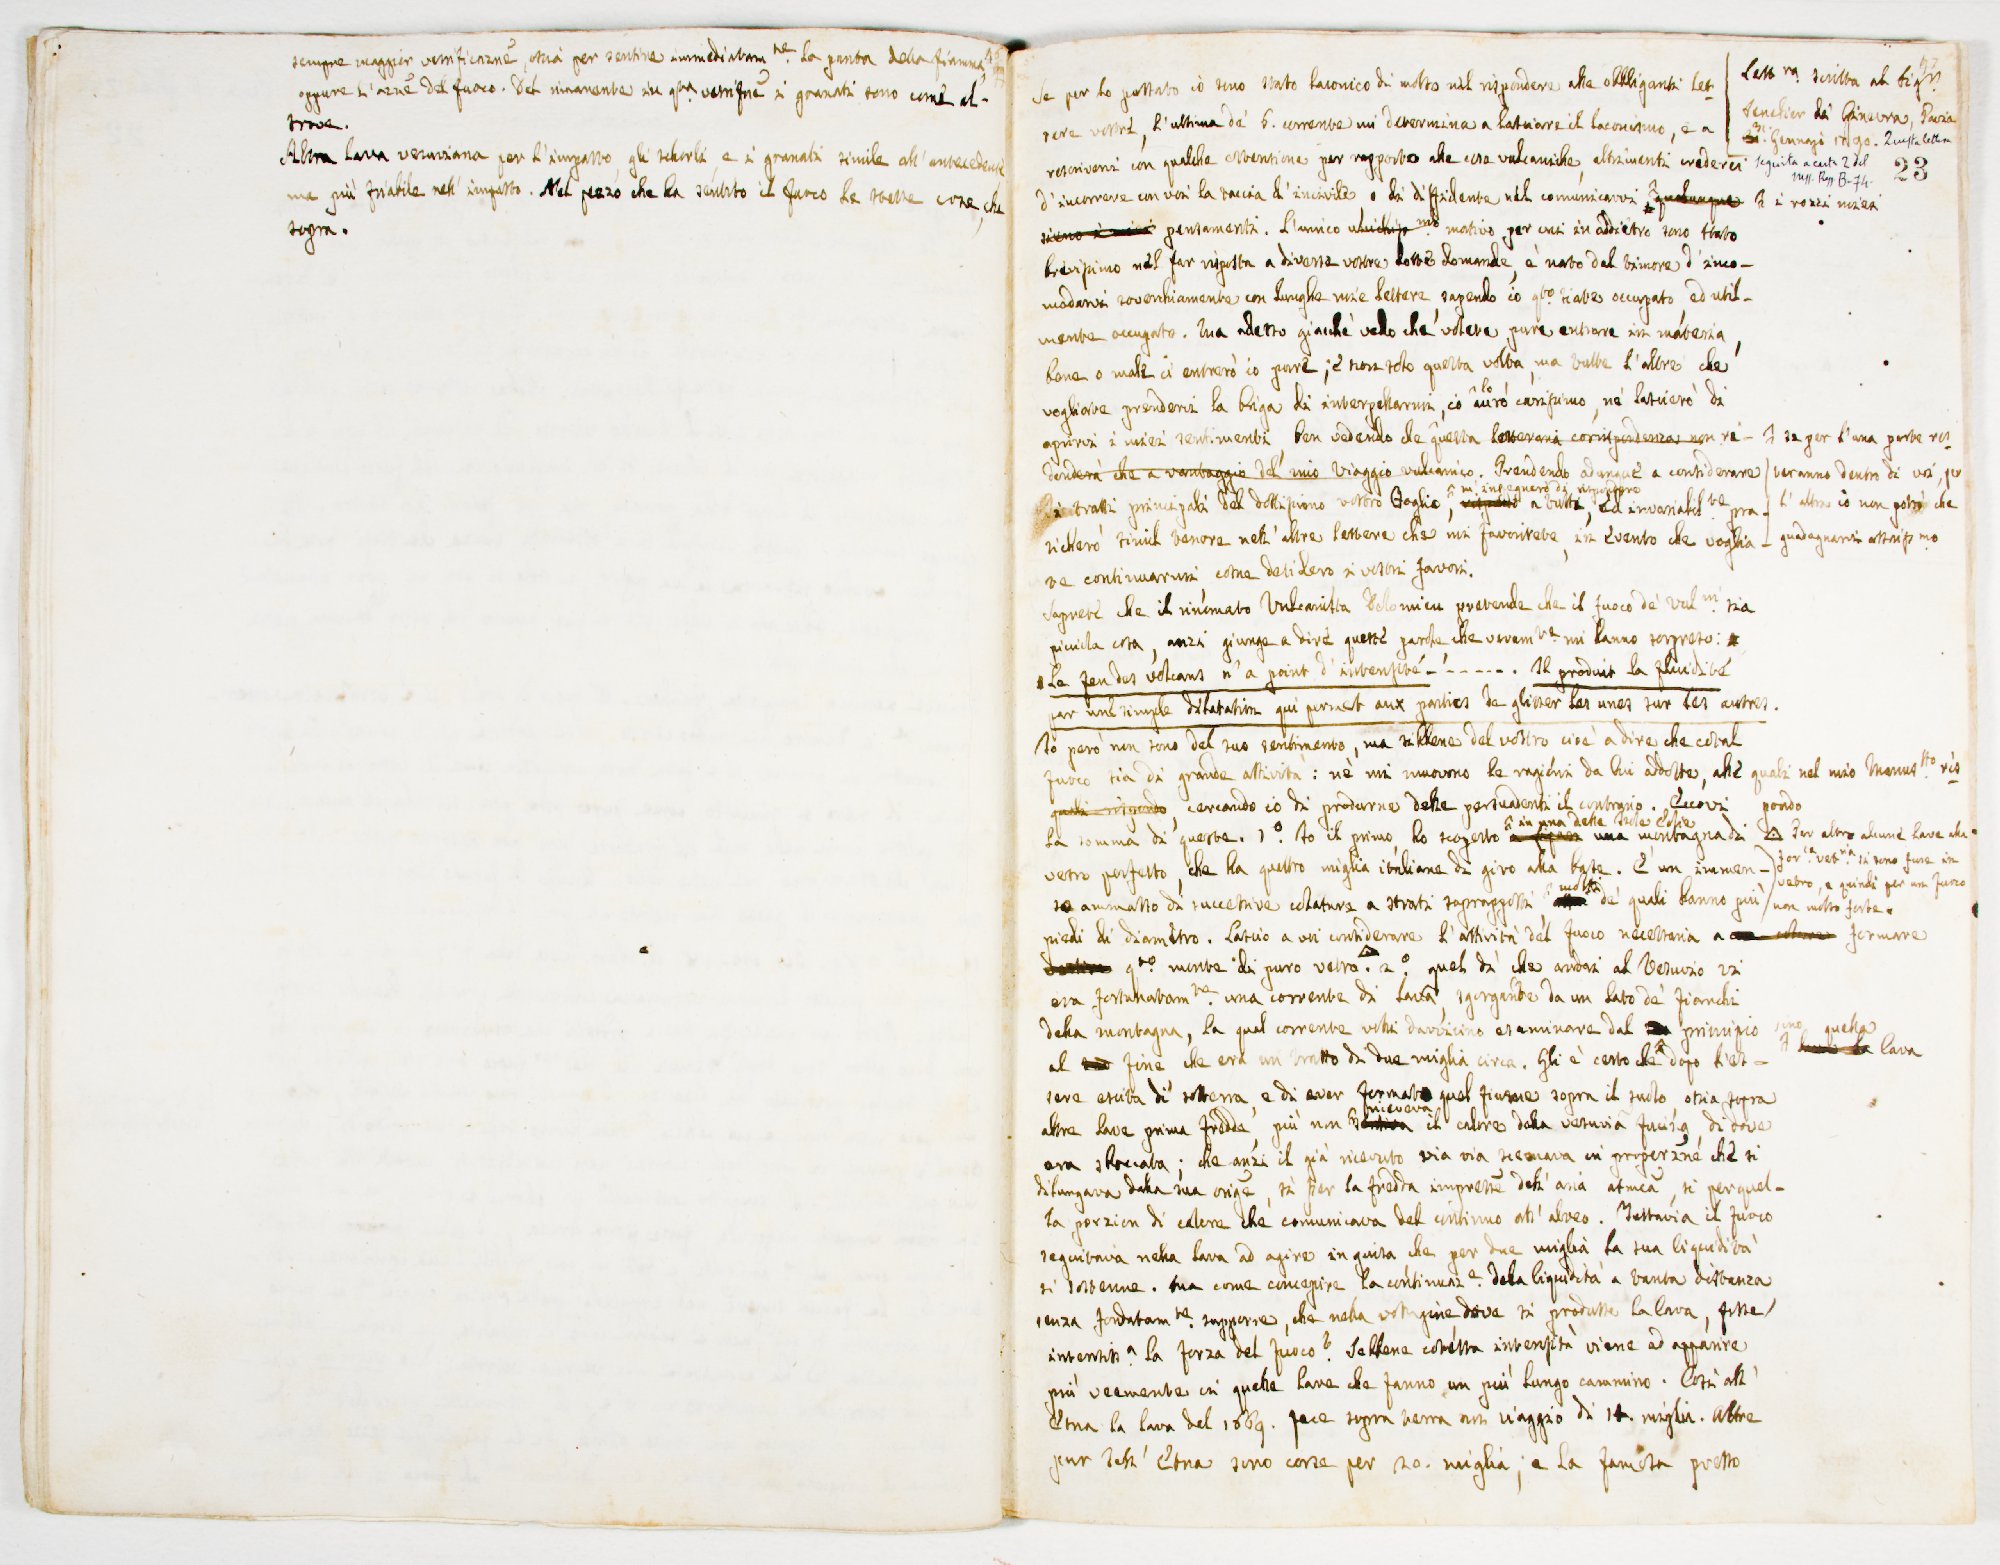 sempre maggior vetrificazne, ossia per sentire immediatam.te la punta della fiamma,
oppure l'azne del fuoco. Del rimanente in q.ta vetrifne i granati sono come al-
trove.
Altra lava vesuviana per l'impasto gli schorli e i granati simile all'antecedente
ma più friabile nell'impasto. Nel pezzo che ha sentito il fuoco le stesse cose, che
sopra.
Lett.ra scritta al Sig.r
Senebier di Ginevra, Pavia
Gennajo 1790. Questa lettera
seguita a carta 2 del
mss. Regg. B. 74.
23
Se per lo passato io sono stato laconico di molto nel rispondere alle obbliganti let-
tere vostre, l'ultima de' 6. corrente mi determina a lasciare il laconismo, e a
rescrivervi con qualche estensione per rapporto alle cose vulcaniche, altrimenti crederei
d'incorrere con voi la taccia d'incivile, o di diffidente nel comunicarvi qualunque i rozzi miei
sieno i miei pensamenti. L'unico motivo per cui in addietro sono stato
brevissimo nel far risposta a diverse vostre dotte domande, è nato dal timore d'inco-
modarvi soverchiamente con lunghe mie lettere, sapendo io q.to siate occupato ed util-
mente occupato. Ma adesso giacché vedo che volete pure entrare in materia,
bene o male ci entrerò io pure; e non solo questa volta, ma tutte l'altre che
vogliate prendervi la briga di interpellarmi, io lo avrò carissimo, né lascierò di
aprirvi i miei sentimenti, ben vedendo che questa letteraria corrispondenza non ri-
donderà che a vantaggio del mio viaggio vulcanico. Prendendo adunque a considerare
se per l'una parte res-
teranno dentro di voi, per
l'altra io non potrò che
guadagnarvi assaiss.mo
i tratti principali del dottissimo vostro Foglio, m'ingegnerò di rispondere a tutti, ed invariabil.te pra-
ticherò simil tenore nell'altre lettere che mi favorirete, in evento che voglia-
te continuarmi come desidero i vostri favori.
Saprete che il rinomato Vulcanista Dolomieu pretende che il fuoco de' Vul.ni sia
picciola cosa, anzi giunge a dire queste parole che veram.te mi hanno sorpreso:
Le feu des volcans n'a point d'intensité - - - - - - . Il produit la fluidité
par une simple dilatation qui permet aux parties de glisser les unes sur les autres.
Io però non sono del suo sentimento, ma sibbene del vostro cioè a dire che cotal
fuoco sia di grande attività: né mi muovono le ragioni da lui addotte, alle quali nel mio Manus.tto ris-
pondo
quali rispondo, cercando io di produrne delle persuadenti il contrario. Eccovi
la somma di queste. 1.o Io il primo, ho scoperto in una delle Isole Eolie una montagna di
vetro perfetto, che ha quattro miglia italiane di giro alla base. È un immen-
so ammasso di successive colature a strati soprapposti molti de' quali hanno più
piedi di diametro. Lascio a voi considerare l'attività del fuoco necessaria a formare
Per altro alcune lave alla
for.ce vet.ria si sono fuse in
vetro, e quindi per un fuoco
non molto forte.
q.to monte di puro vetro. 2.o quel dì che andai al Vesuvio vi
era fortunatam.te una corrente di lava, sgorgante da un lato de' fianchi
della montagna, la qual corrente volli davvicino esaminare dal principio sino
al suo fine che era un tratto di due miglia circa. Gli è certo che quella lava dopo l'es-
sere escita di sotterra, e di aver formato quel fiume sopra il suolo ossia sopra
altre lave prima fredde, più non riceveva il calore dalla vesuvia fucina, di dove
era sboccata; che anzi il già ricevuto via via scemava in proporzne che si
dilungava dalla sua orige, sì per la fredda impresse dell'aria atmca, sì per quel-
la porzion di calore che comunicava del continuo all'alveo. Tuttavia il fuoco
seguitava nella lava ad agire in guisa che per due miglia la sua liquidità
si sostenne. Ma come concepire la continuaz.e della liquidità a tanta distanza
senza fondatam.te supporre, che nella voragine dove si produsse la lava, fosse
intensiss.a la forza del fuoco? Sebbene cotesta intensità viene ad apparire
più veemente in quelle lave che fanno un più lungo cammino. Così all'
Etna la lava del 1669. fece sopra terra un viaggio di 14. miglia. Altre
pur dell'Etna sono corse per 20. miglia; e la famosa presso